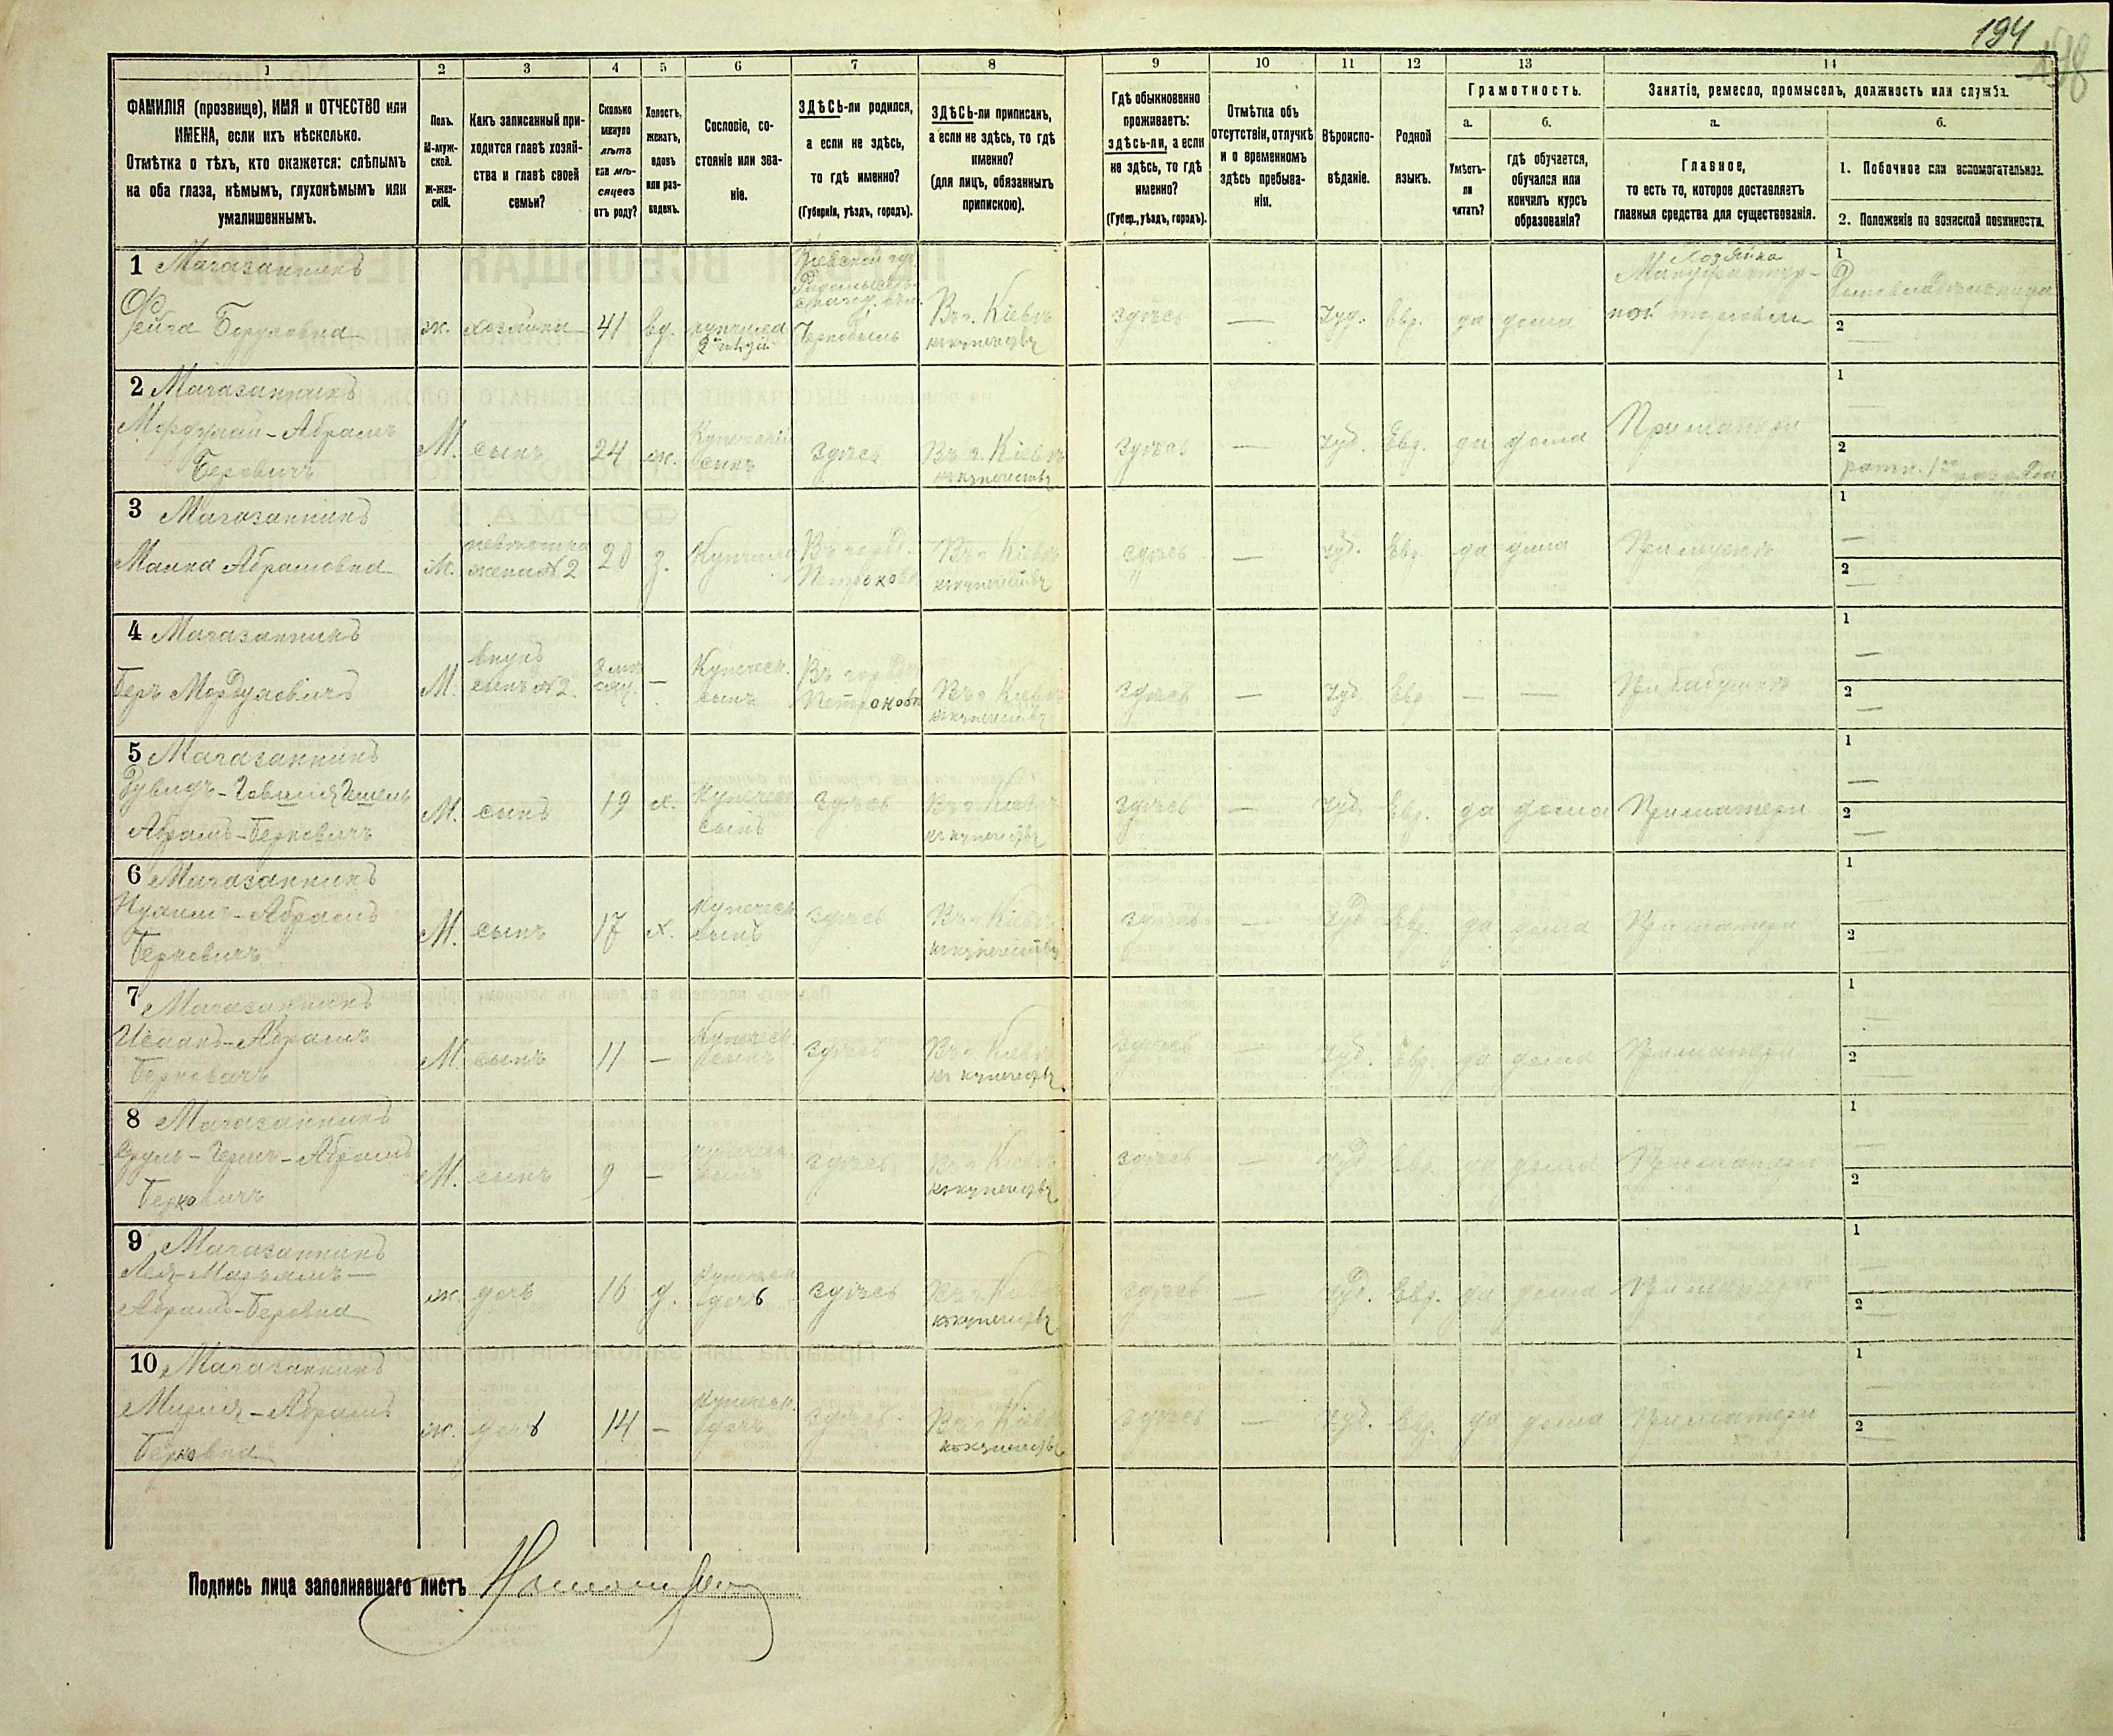 194
1 2 3 4 5 6 7 8 9 10 11 12 13 14
ФАМИЛІЯ (прозвище), ИМЯ и ОТЧЕСТВО или
ИМЕНА, если ихъ нѣсколько.
Отмѣтка о тѣхъ, кто окажется: слѣпымъ
на оба глаза, нѣмымъ, глухонѣмымъ или
умалишеннымъ.
Полъ.
М-муж-
ской.
Ж-жен-
скій.
Какъ записанный при-
ходится главѣ хозяй-
ства и главѣ своей
семьи?
Сколько
минуло
лѣтъ
или мѣ-
сяцевъ
отъ роду?
Холостъ,
женатъ,
вдовъ
или раз-
веденъ.
Сословіе, со-
стояніе или зва-
ніе.
ЗДѢСЬ-ли родился,
а если не здѣсь,
то гдѣ именно?
(Губернія, уѣздъ, городъ).
ЗДѢСЬ-ли приписанъ,
а если не здѣсь, то гдѣ
именно?
(для лицъ, обязанныхъ
припискою).
Гдѣ обыкновенно
проживаетъ:
здѣсь-ли, а если
не здѣсь, то гдѣ
именно?
(Губер., уѣздъ, городъ).
Отмѣтка объ
отсутствіи, отлучкѣ
и о временномъ
здѣсь пребыва-
ніи.
Вѣроиспо-
вѣданіе.
Родной
языкъ.
Грамотность.
а.
Умѣетъ-
ли
читать?
б.
гдѣ обучается,
обучался или
кончилъ курсъ
образованія?
Занятіе, ремесло, промыселъ, должность или служба.
а.
Главное,
то есть то, которое доставляетъ
главныя средства для существованія.
б.
1. Побочное или вспомогательное.
2. Положеніе по воинской повинности.
1 Магазанникъ
Боруховна
ж. хозяйка 41 вд. купчиха
Кіевской губ.
Чернобыль
Въ г. Кіевѣ
къ купечеству
здѣсь — Іуд. Евр. да дома
Хозяйка
Мануфактур-
ной торговли
1
Домовладѣлица
2 —
2 Магазанникъ
Мордухай-Абрамъ
Беровичъ
М. сынъ 24 ж. Купеческій
сынъ
здѣсь Въ г. Кіевѣ
къ купечеству
здѣсь — Іуд. Евр. да дома При матери
1 —
2
ратн. 1го разряда
3 Магазанникъ
Манна Абрамовна
ж. невѣстка
жена № 2
20 з. Купчиха Въ город.
Петроковѣ
Въ г. Кіевѣ
къ купечеству
здѣсь — Іуд. Евр. да дома При мужѣ
1 —
2 —
4 Магазанникъ
Беръ Мордуховичъ
М. внукъ
сынъ № 2.
3 мѣ-
сяц. — Купеческ.
сынъ
Въ городѣ
Петроковѣ
Въ г. Кіевѣ
къ купечеству
здѣсь — Іуд. Евр. — — При бабушкѣ
1 —
2 —
5 Магазанникъ
Абрамъ-Берковичъ
М. сынъ 19 х. Купеческ.
сынъ
здѣсь Въ г. Кіевѣ
къ купечеству
здѣсь — Іуд. Евр. да дома При матери
1 —
2 —
6 Магазанникъ
Нухимъ-Абрамъ
Берковичъ
М. сынъ 17 х. Купеческ.
сынъ
здѣсь Въ г. Кіевѣ
къ купечеству
здѣсь — Іуд. Евр. да дома При матери
1 —
2 —
7 Магазанникъ
Исаакъ-Абрамъ
Берковичъ
М. сынъ 11 — Купеческ.
сынъ
здѣсь Въ г. Кіевѣ
къ купечеству
здѣсь — Іуд. Евр. да дома При матери
1 —
2 —
8 Магазанникъ
Сруль-Герш-Абрамъ
Берковичъ
М. сынъ 9 — купеческ.
сынъ
здѣсь Въ г. Кіевѣ
къ купечеству
здѣсь — Іуд. Евр. да дома При матери
1 —
2 —
9 Магазанникъ
Лея-Марьямъ-
Абрамъ-Беровна
ж. дочь 16 д. Купеческ.
дочь
здѣсь Въ г. Кіевѣ
къ купечеству
здѣсь — Іуд. Евр. да дома При матери
1 —
2 —
10 Магазанникъ
Абрамъ
Берковна
ж. дочь 14 — Купеческ.
дочь
здѣсь Въ г. Кіевѣ
къ купечеству
здѣсь — Іуд. Евр. да дома При матери
1 —
2 —
Подпись лица заполнявшаго листъ